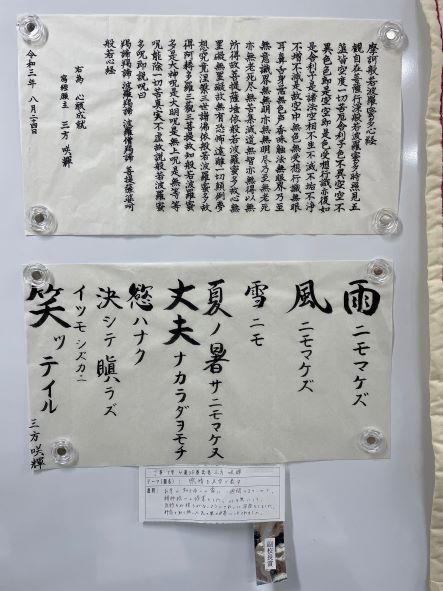 摩訶般若波羅蜜多心経
観自在菩薩行深般若波羅蜜多時照見五
蘊皆空度一切苦厄舎利子色不異空空不
異色色即是空空即是色受想行識亦復如
是舎利子是諸法空相不生不滅不垢不浄
不増不減是故空中無色無受想行識無眼
耳鼻舌身意無色声香味触法無眼界乃至
無意識界無無明亦無無明尽乃至無老死
亦無老死尽無苦集滅道無智亦無得以無
所得故菩提薩埵依般若波羅蜜多故心無
罣礙無罣礙故無有恐怖遠離一切顛倒夢
想究竟涅槃三世諸佛依般若波羅蜜多故
得阿耨多羅三藐三菩提故知般若波羅蜜
多是大神呪是大明呪是無上呪是無等等
呪能除一切苦真実不虚故説般若波羅蜜
多呪即説呪曰
羯諦羯諦 波羅羯諦 波羅僧羯諦 菩提薩婆訶
般若心経
右為 心願成就
寫経願主 三方 咲輝
令和三年 八月二四日
雨ニモマケズ
風ニモマケズ
雪ニモ
夏ノ暑サニモマケヌ
丈夫ナカラダヲモチ
慾ハナク
決シテ瞋ラズ
イツモシズカニ
笑ッテイル
三方咲輝
テーマ(題名):
副校長賞